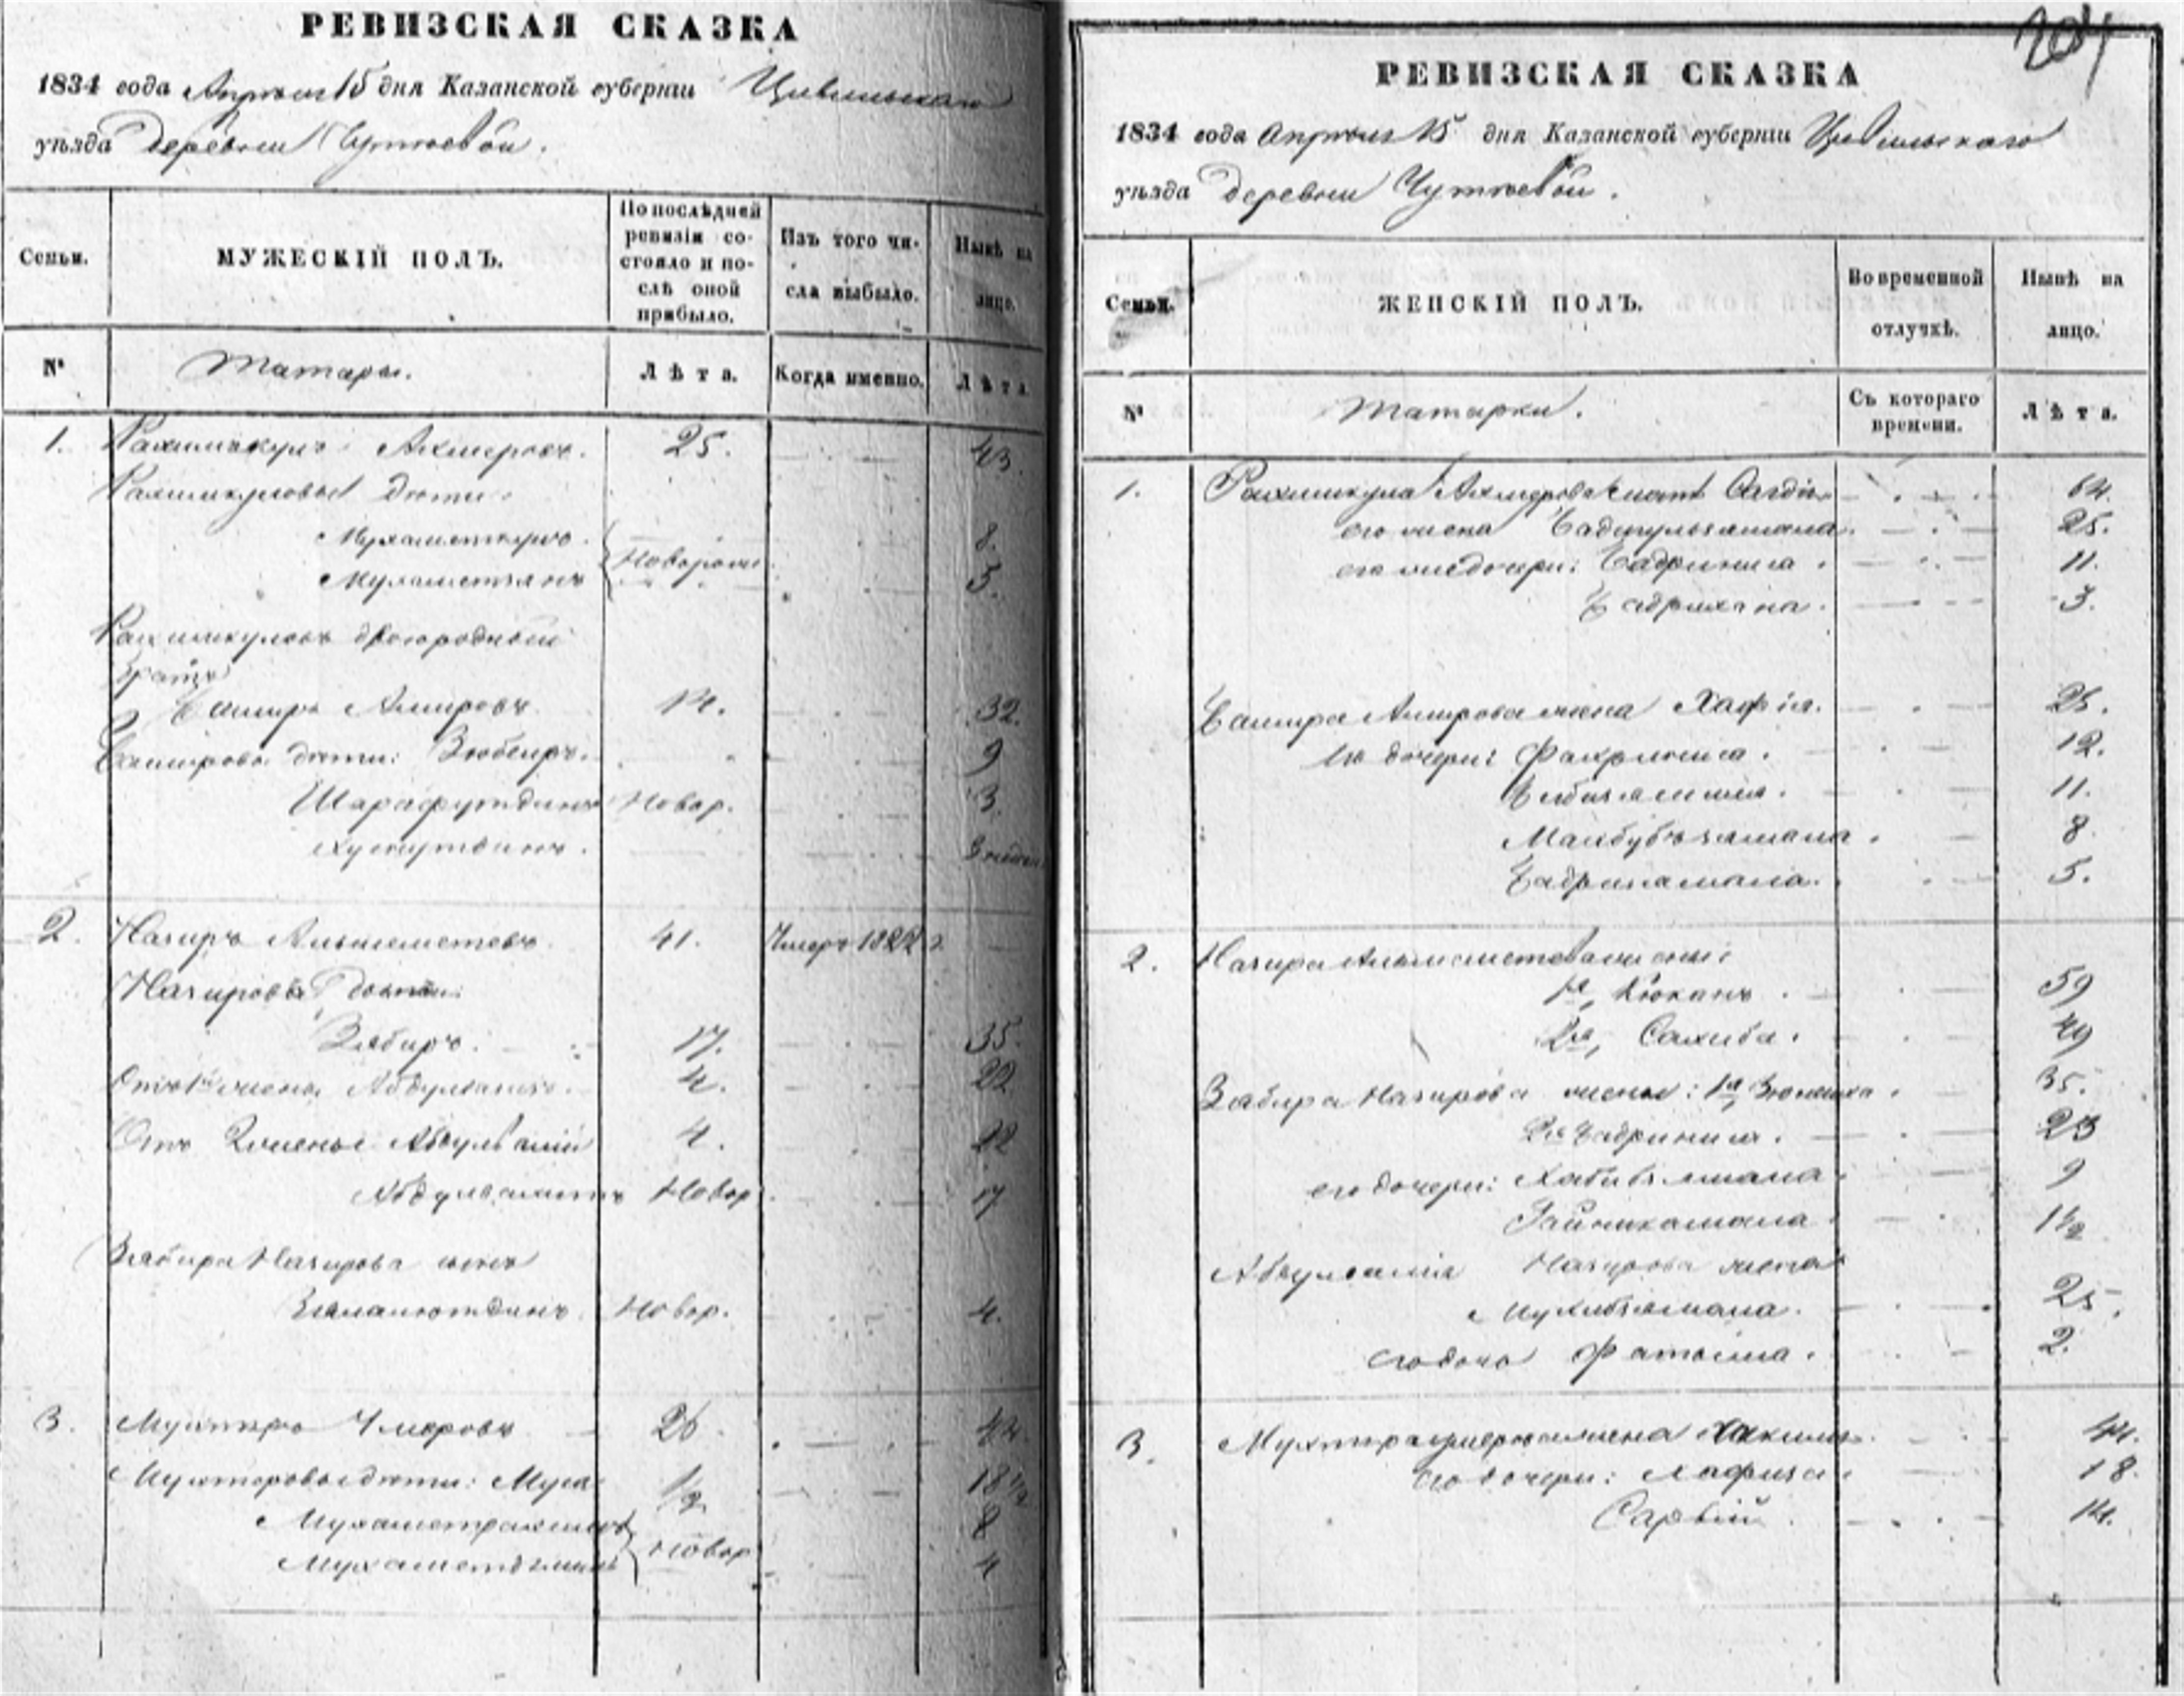 РЕВИЗСКАЯ СКАЗКА
1834 года Апреля 15 дня Казанской губернии Цивильскаго
уѣзда деревни Чутеевой.
Семьи.
МУЖЕСКІЙ ПОЛЪ.
По послѣдней ревизіи состояло и послѣ оной прибыло.
Изъ того числа выбыло.
Нынѣ на лицо.
№
Татары.
Лѣта.
Когда именно.
Лѣта
1. Рахимкулъ Ахмеровъ. 25. 43.
Рахимкуловы дѣти:
8.
Мухаметзянъ Новорож. 5.
Рахимкуловъ двоюродный
братъ
Баширъ Амировъ 14. 32.
Башировы дѣти: Зюбеиръ. 9
Шарафутдинъ Новор. 3.
Хуснутдинъ. 3 недѣли
2. Назиръ Альмеметевъ. 41. Умеръ 1822 г.
Назировы дѣти:
Забиръ. 17. 35.
Отъ 1й жены 4. 22
Отъ 2 жены 4. 22
Новор. 17
Забира Назирова сынъ
Новор. 4.
3. Мухтаръ Умеровъ 26. 44.
Мухтаровы дѣти: Муса ½ 18½
Мухаметрахимъ 8
Новор. 4
204
РЕВИЗСКАЯ СКАЗКА
1834 года Апреля 15 дня Казанской губерніи Цивильскаго
уѣзда деревни Чутеевой.
Семьи.
ЖЕНСКІЙ ПОЛЪ.
Во временной отлучкѣ.
Нынѣ на лицо.
№
Татарки.
Съ котораго времени.
Лѣта.
1. Рахимкула Ахмерова мать 64.
его жена Бадигульзямала. 25.
его же дочери: Бадриниса. 11.
Бадрихана. 3.
Башира Амирова жена Хафіза. 28.
Его дочери: Фахриниса. 12.
11.
Махбубзямала. 8
Бадризамала. 5.
2. Назира Альмеметева жены:
1я, Кюканъ. 59
2я, Сахиба. 49
Забира Назирова жены: 1я 35.
2я Бадриниса. 23
его дочери: Хабибзямала. 9
Гайникамала. 1½
Назирова жена
Мухибзямала. 25.
его дочь Фатыма. 2.
3. Мухтара Умерова жена Хакима. 44.
его дочери: Хафиза. 18.
Сарвій. 14.